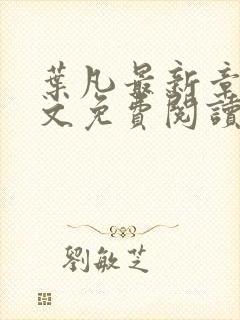 葉凡最新章
文免費閱讀
劉敏芝